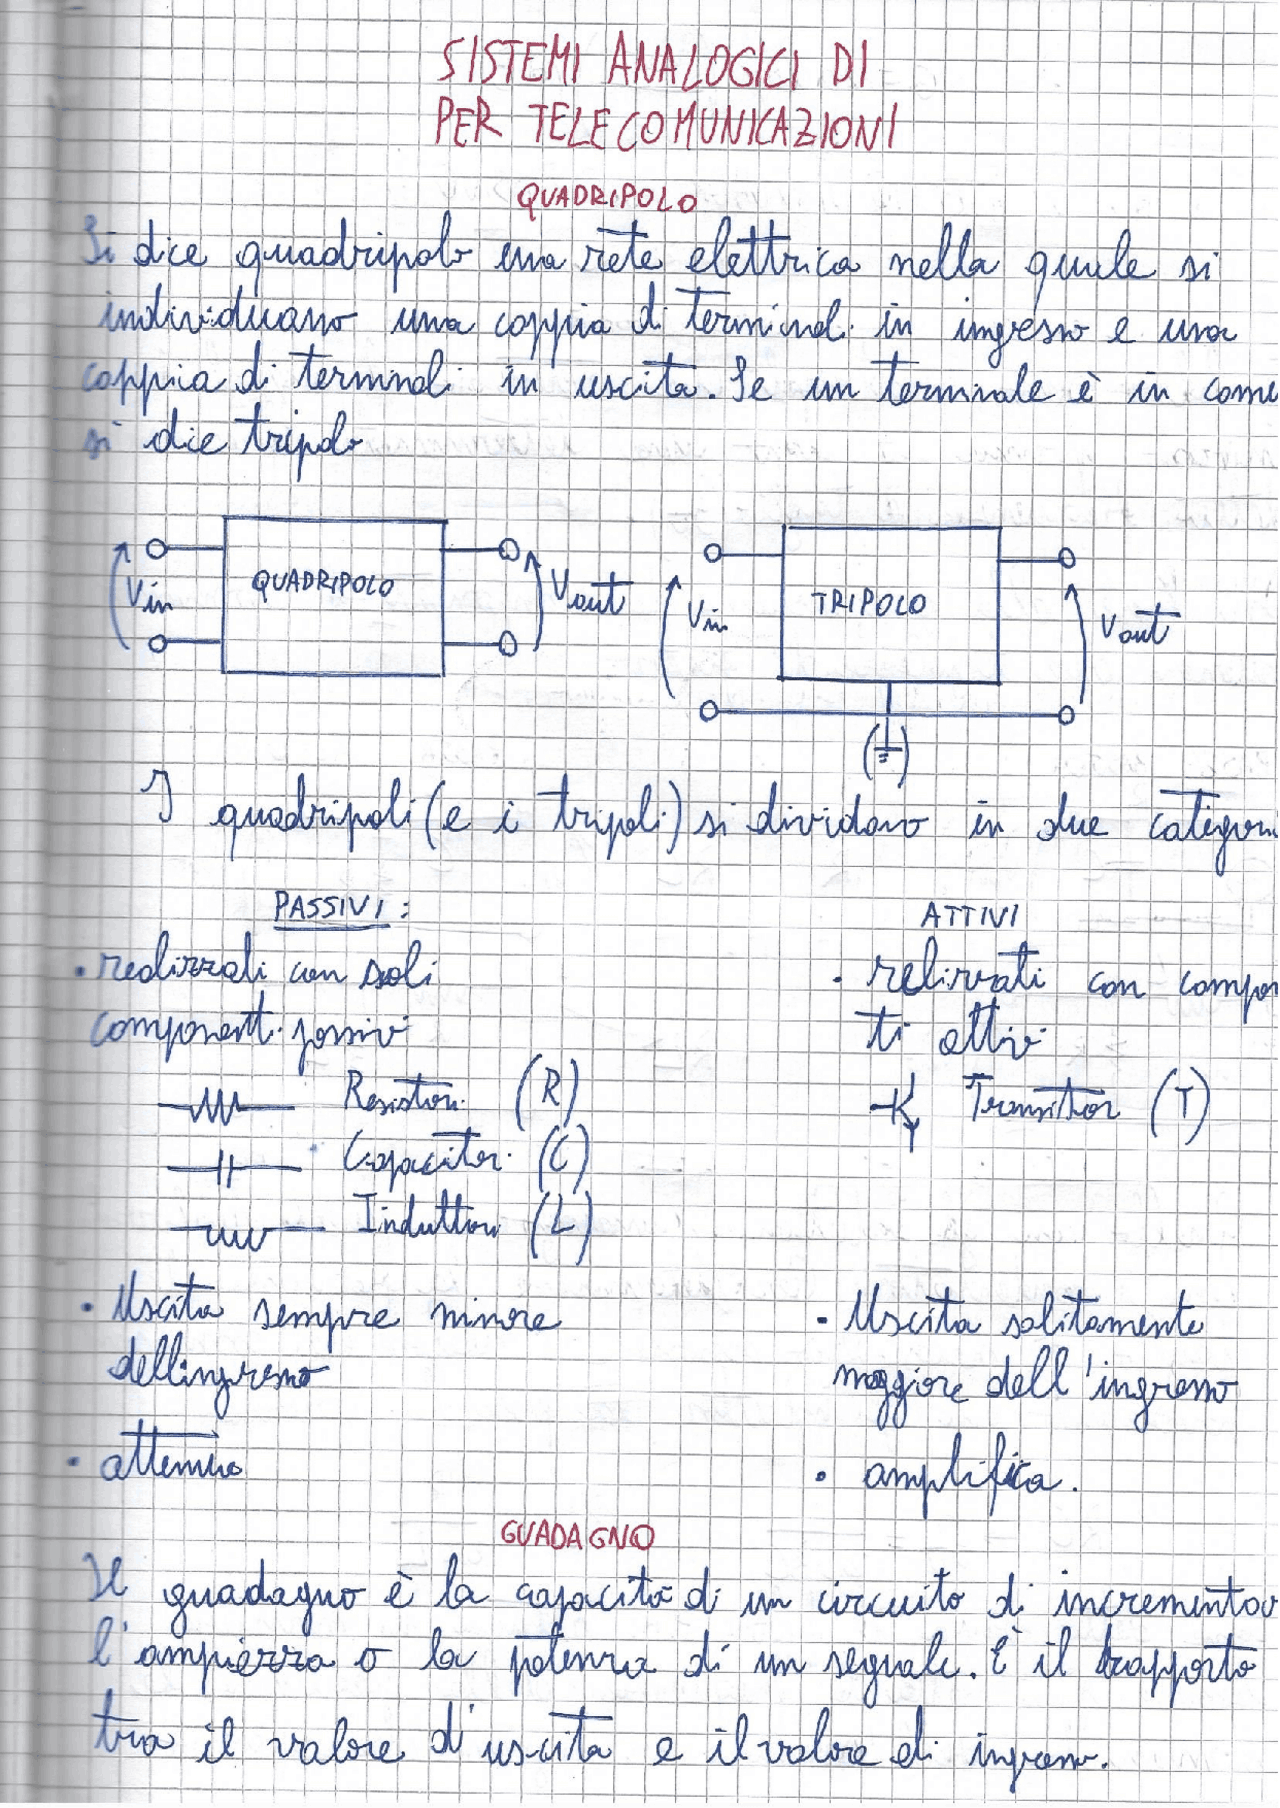 SISTEMI ANALOGICI DI
PER TELECOMUNICAZIONI
QUADRIPOLO
Si dice quadripolo una rete elettrica nella quale si
individuano una coppia di terminali in ingresso e una
coppia di terminali in uscita. Se un terminale è in come
si dice tripolo
Vin
QUADRIPOLO
Vout
Vin
TRIPOLO
Vout
I quadripoli (e i tripoli) si dividono in due categori
PASSIVI:
• realizzati con soli
componenti passivi
Resistori (R)
Capacitori (C)
Induttori (L)
• Uscita sempre minore
dell'ingresso
• attenua
ATTIVI
• relizzati con compon
ti attivi
Transistor (T)
• Uscita solitamente
maggiore dell'ingresso
• amplifica.
GUADAGNO
Il guadagno è la capacità di un circuito di incrementar
l'ampiezza o la potenza di un segnale. È il rapporto
tra il valore d'uscita e il valore di ingresso.